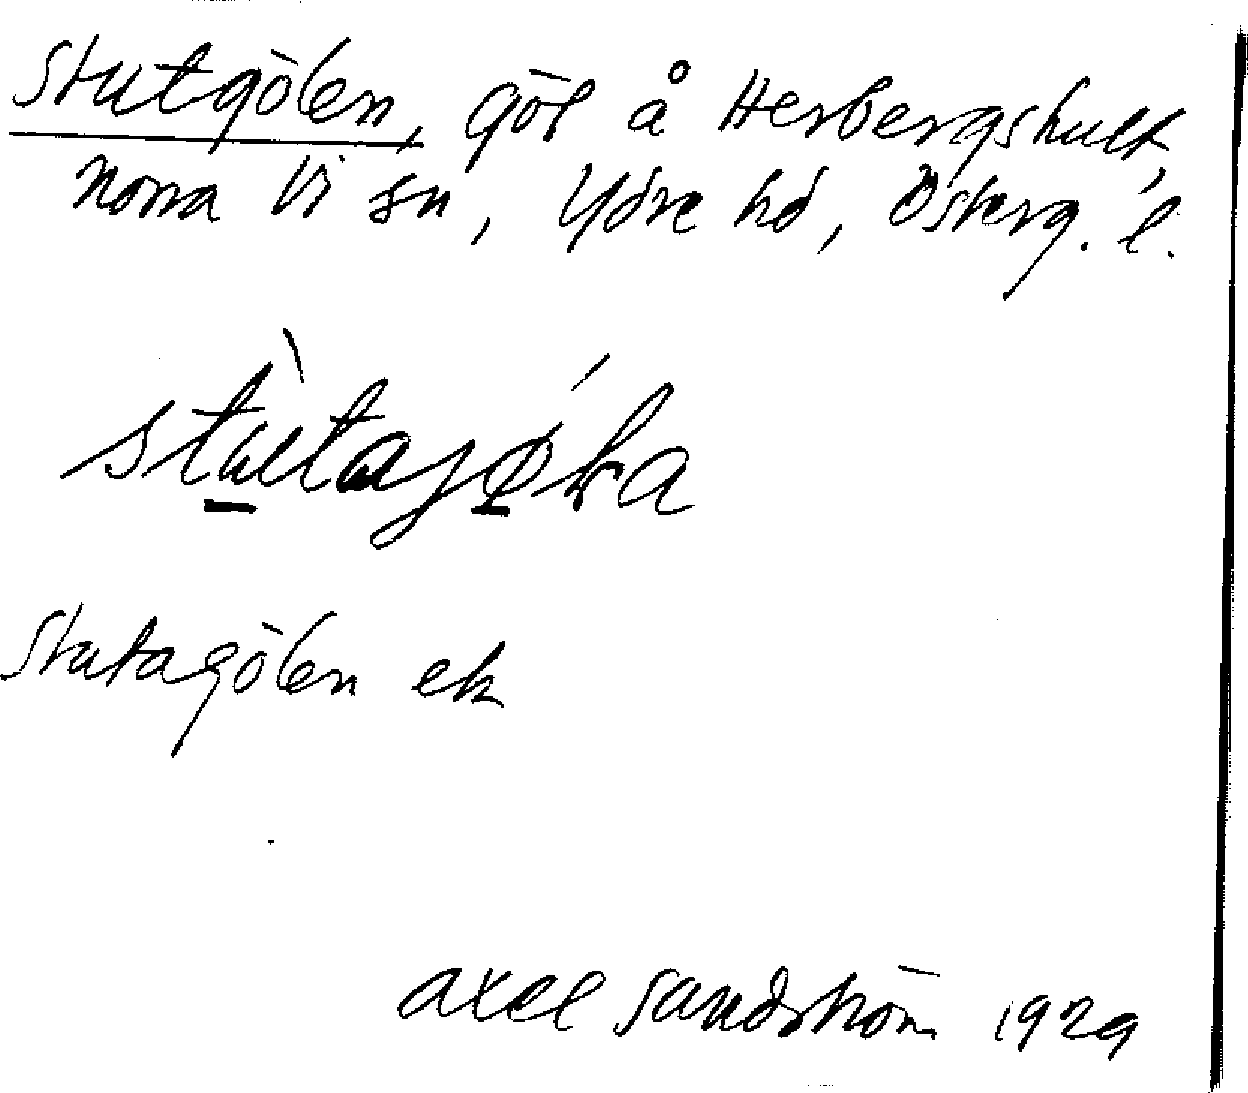 Stutgölen, göl å Herbergshult,
Norra Vi sn, Ydre hd, Österg. l.
stùtajǿla
Stutagölen ek
Axel Sandström 1929